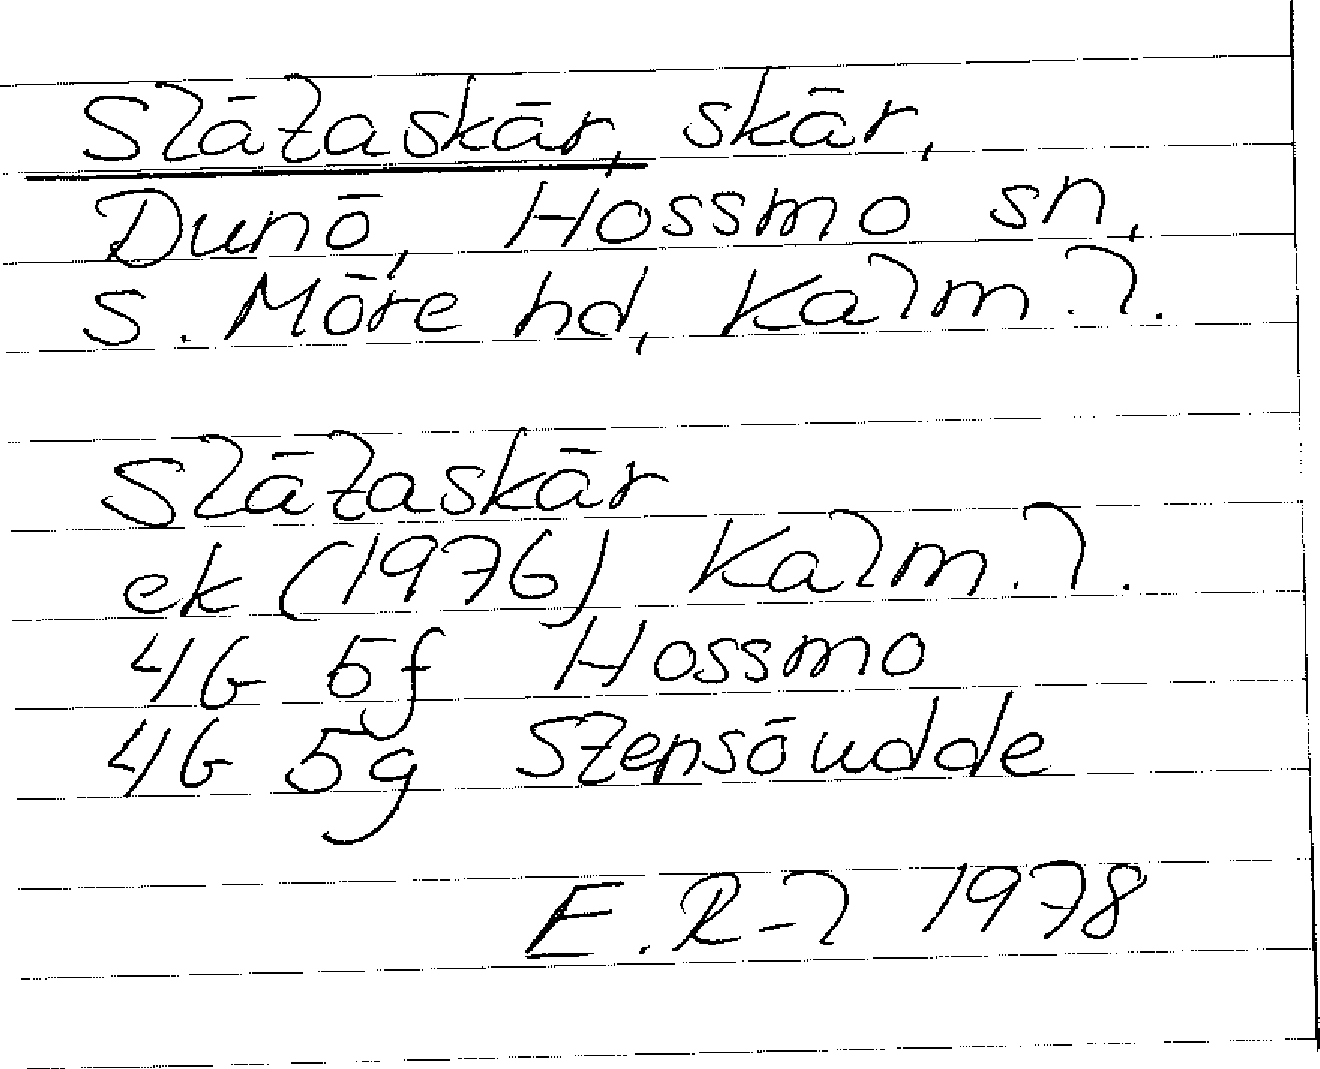 Slätaskär, skär,
Dunö, Hossmo sn,
S. Möre hd, Kalm. l.
Slätaskär
ek (1976) Kalm. l.
4G 5f Hossmo
4G 5g Stensöudde
E. R-l 1978